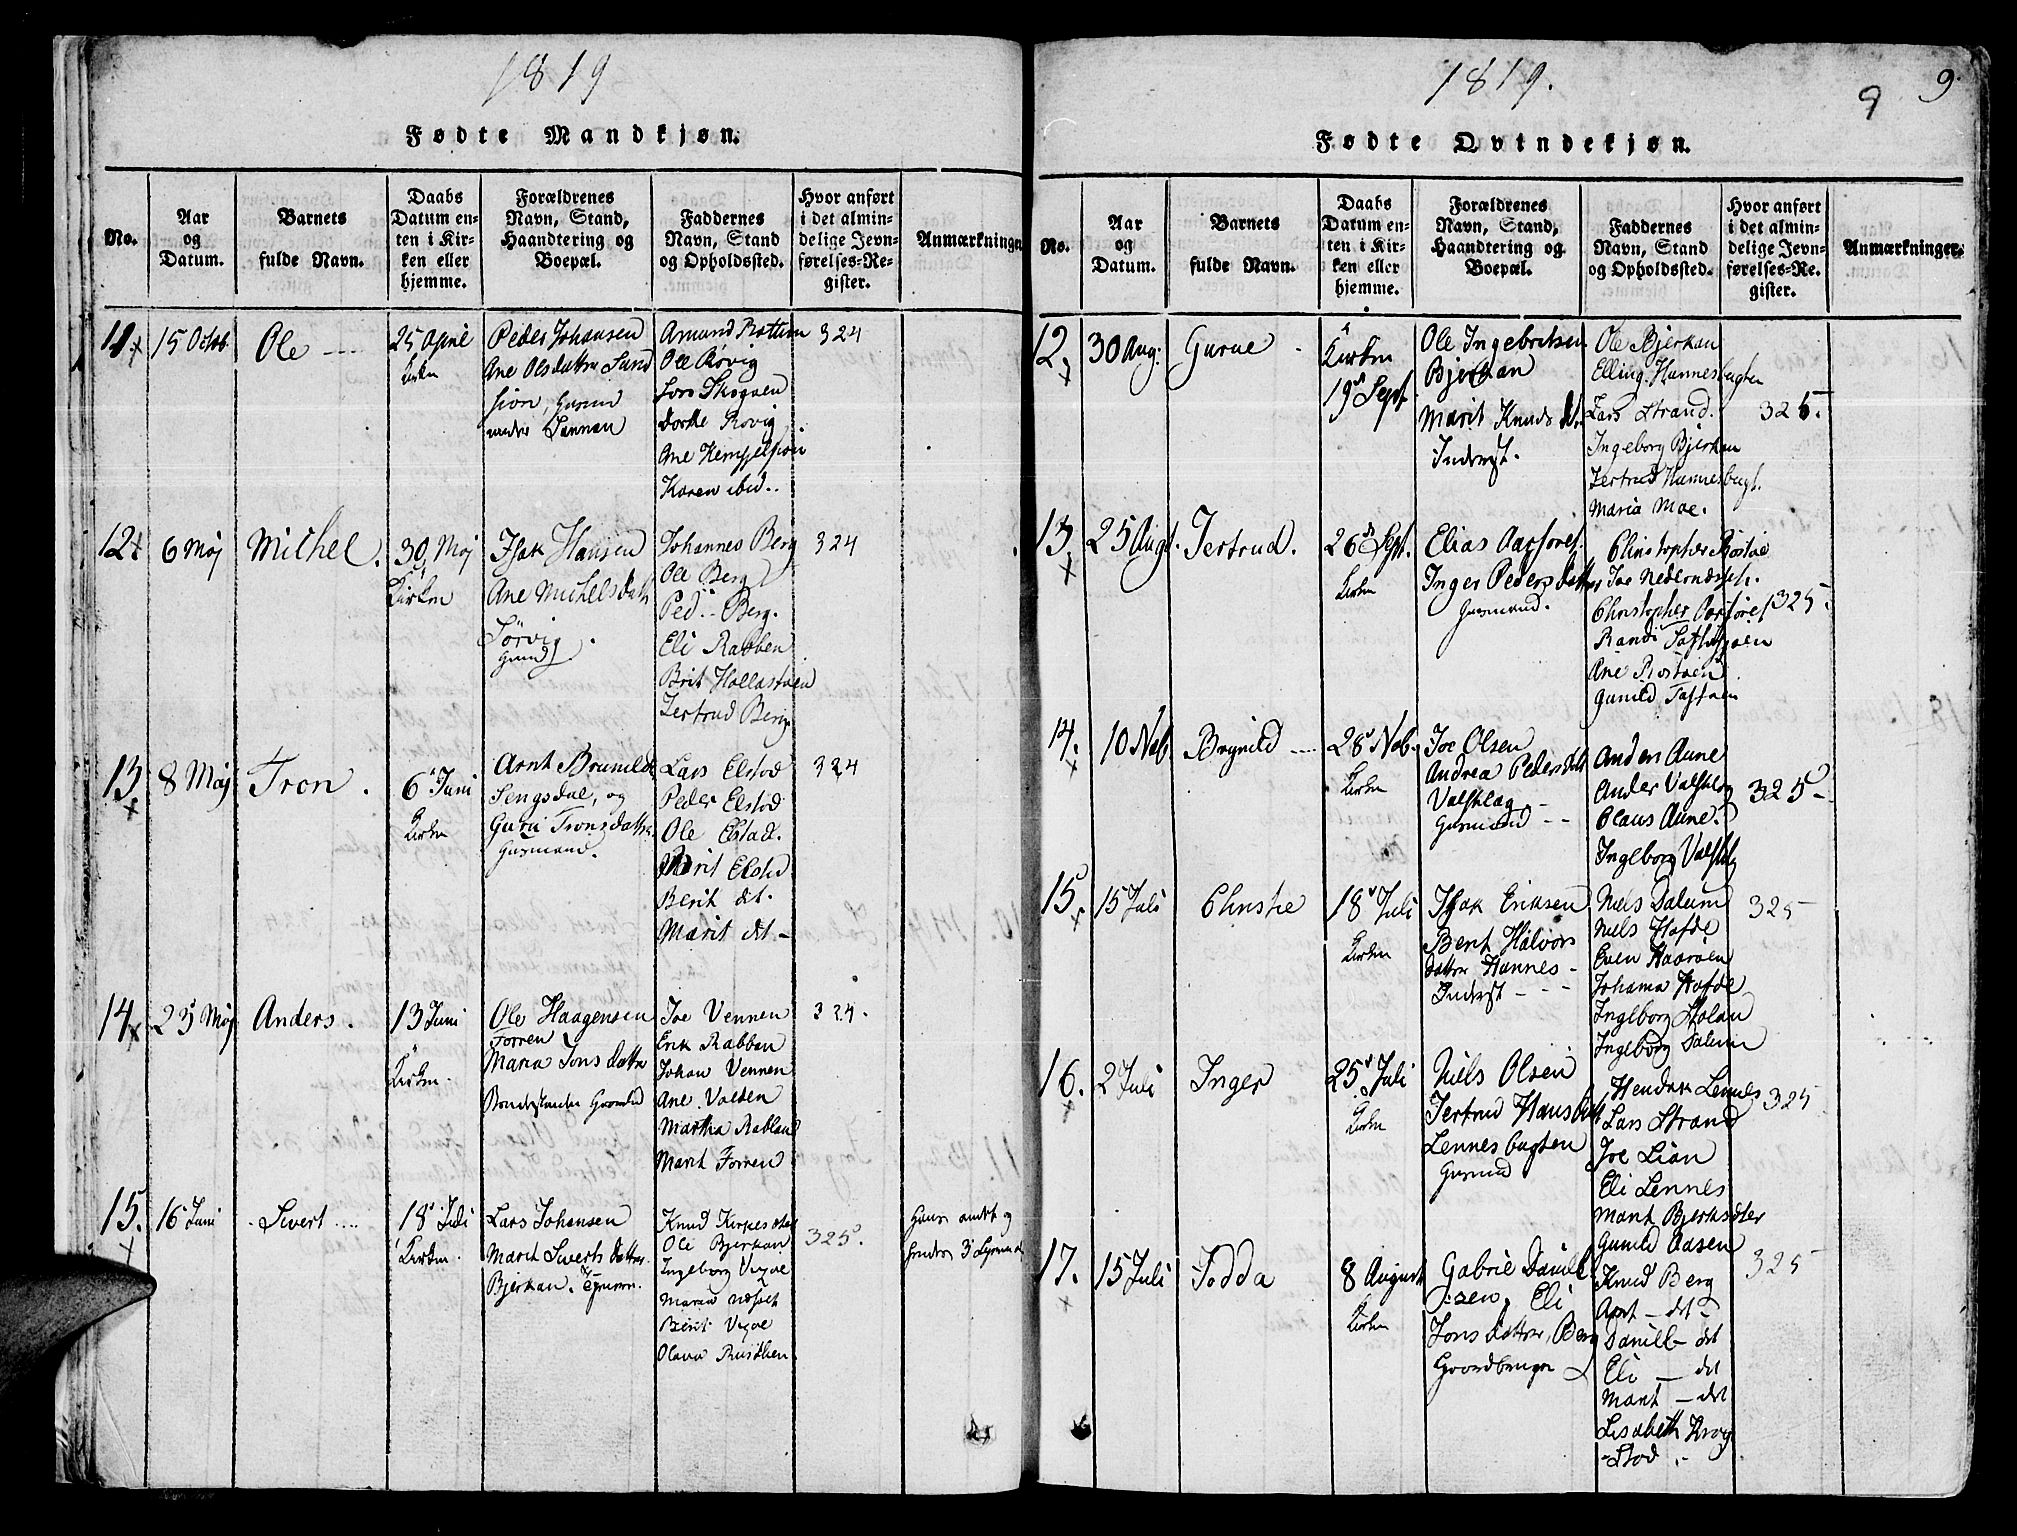 1819
Fødte Mandkjøn.
No.
Aar
og
Datum.
Barnets
fulde Navn.
Daabs
Datum en-
ten i Kir-
ken eller
hjemme.
Forældrenes
Navn, Stand,
Haandtering og
Boepæl.
Faddernes
Navn, Stand
og Opholdssted.
Hvor anført
i det almin-
delige Jevn-
førelses-Re-
gister.
Anmærkninger
11
15 Octob
Ole
25 April
Kirken
Peder Johansen
Ane Olsdatter Sand
under
Amund Bottum
Ole Røvig
Lars Skogaen
Dorthe Rovig
Ane
Karen ibid.
324
12
6 Maj
Michel.
30 Maj
Kirken
Isak Hansen
Ane Michelsdatt
Sørvig
Johannes Berg
Ole Berg
Ped.. Berg.
Eli Rabben
Brit Hollastøien
Jertrud Berg
324
13
8 Maj
Tron.
6 Juni
Kirken
Arnt Brunilds
Sengsdal, og
Guru Tronsdatter
Gusmand.
Lars Elstad
Peder Elstad
Ole Elstad.
Marit Elstad
Berit dt.
Marit dt.
324
14
25 Maj
Anders.
13 Juni
Kirken.
Ole Haagensen
Forren
Maria Jonsdatter
Joe Vennen
Erik Rabben
Johan Vennen
Ane Valsen
Martha
Marit Forren
324.
15.
16 Juni
Sivert
18 Juli
Kirken.
Lars Johansen
Marit Siverts datter
Bjerkan.
Knud
Ole Bjerkan
Ingeborg Vigve
Maria
Berit Vigve
Olava
325.
og
1819.
9
9.
Fødte Qvindekjøn.
No.
Aar
og
Datum.
Barnets
fulde Navn.
Daabs
Datum en-
ten i Kir-
ken eller
hjemme.
Forældrenes
Navn, Stand,
Haandtering og
Boepæl.
Faddernes
Navn, Stand
og Opholdssted.
Hvor anført
i det almin-
delige Jevn-
førelses-Re-
gister.
Anmærkninger.
12.
30 Aug.
Gurue
Kirken
19 Sept.
Ole Ingebritsen
Bjerkan
Marit Knuds d.
Inderst.
Ole Bjerkan
Elling Hannesbugten
Lars Strand.
Ingeborg Bjerkan
Jertrud Hannesbugt.
Maria Moe.
325.
13.
25 Augt.
Jertrud.
26 Sept.
Kirken
Elias Aasforet
Inger Pedersdatter
Gusmand.
Christopher Røstøe
Joe
Christopher Aasforet
Randi
Ane Rostøen
Gunild
325.
14.
10 Nob
Brynild
28 Nob.
Kirken
Joe Olsen
Andrea Pedersdatt
Valsklæg
Gusmand
Anders Aune
Ander Valsklæg
Claus Aune.
Ingeborg Valsklæg
325
15
15 Juli
Christie
18 Juli
Kirken
Isak Eriksen
Berit Halvors
datter Hannes
Inderst
Niels Dalum
Niels Hofde
Even Haarøen
Johanna Hofde
Ingeborg Holan
Ingeborg Dalum
325
16.
2 Juli
Inger
25 Juli
Kirken
Niels Olsen
Jertrud Hansdatt
Lennesbugten
Gusmand
Hendrik Lennes
Lars Strand
Joe Lian
Eli Lennes
Marit Bjerksæter
Gunild Aasen
325
17.
15 Juli
Jodda
8 August
Kirken
Gabriel Daniel
sen, Eli
Jons datter, Berg
Gaardbruger
Knud Berg
Arnt — dt
Daniel — det
Eli — det
Marit — det
Lisabeth Krog
stad
325